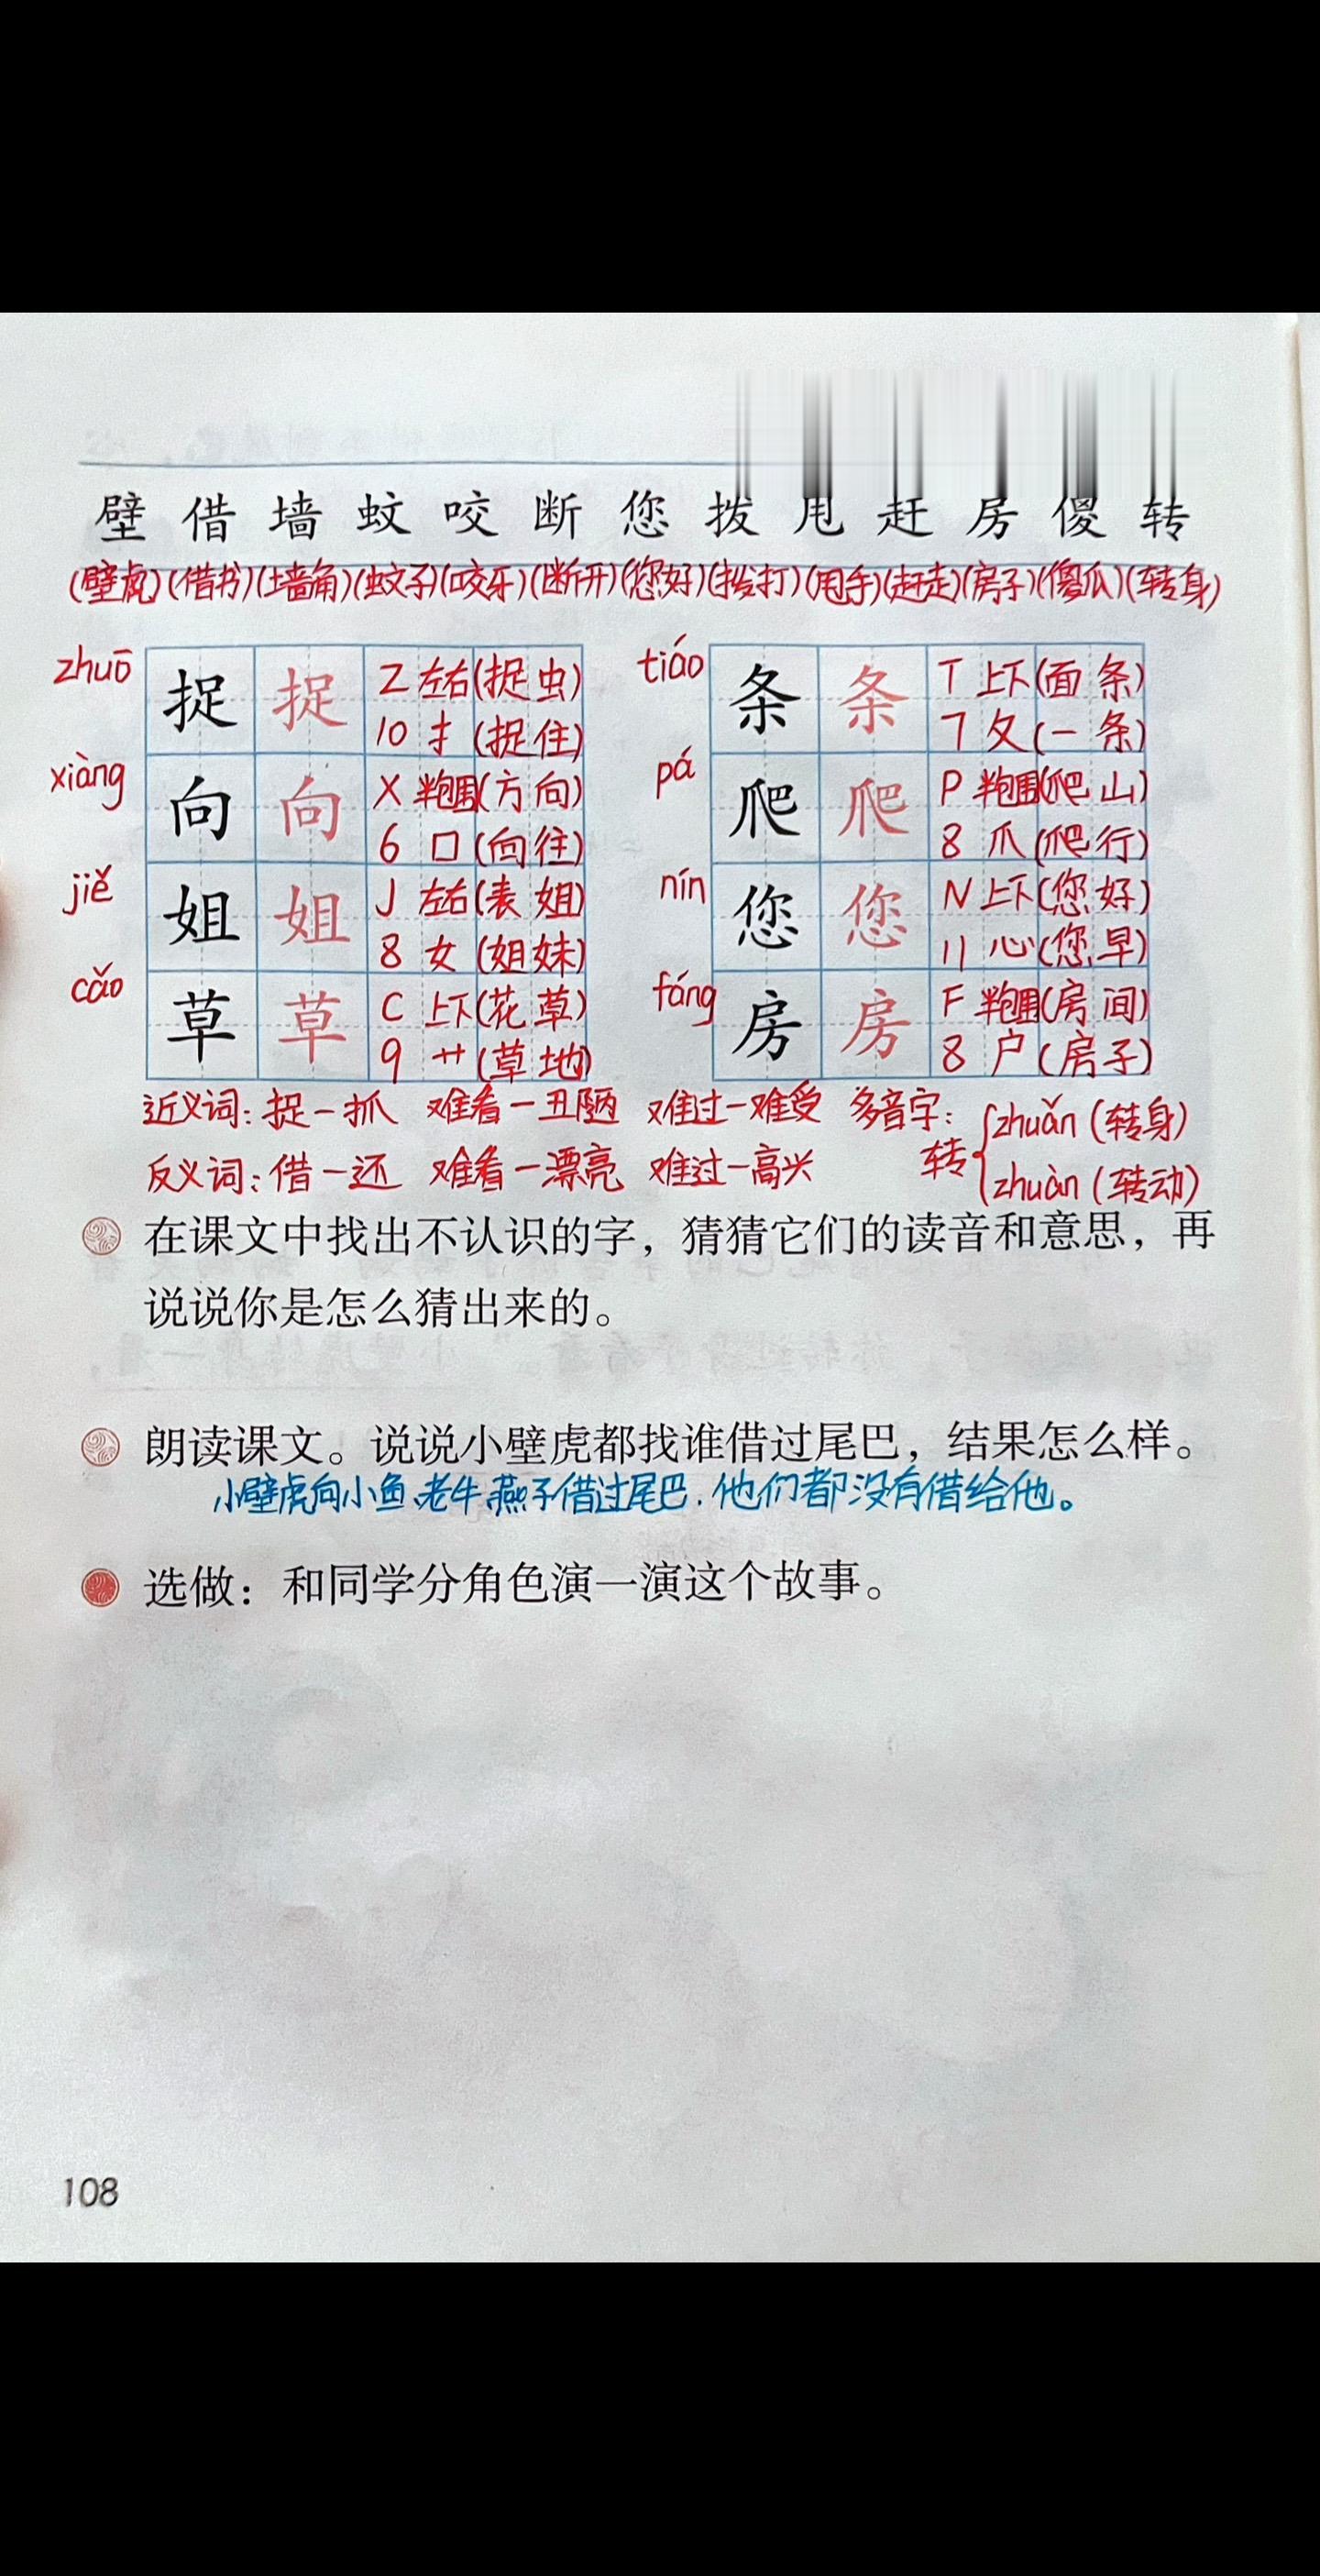 壁 借 墙 蚊 咬 断 您 拨 甩 赶 房 傻 转
(壁虎)(借书)(墙角)(蚊子)(咬牙)(断开)(您好)(拨打)(甩手)(赶走)(房子)(傻瓜)(转身)
zhuō 捉 捉 Z 左右(捉虫)
10 扌(捉住)
xiàng 向 向 X 半包围(方向)
6 口(向往)
jiě 姐 姐 J 左右(表姐)
8 女(姐妹)
cǎo 草 草 C 上下(花草)
9 艹(草地)
tiáo 条 条 T 上下(面条)
7 夂(一条)
pá 爬 爬 P 半包围(爬山)
8 爪(爬行)
nín 您 您 N 上下(您好)
11 心(您早)
fáng 房 房 F 半包围(房间)
8 户(房子)
近义词：捉—抓 难看—丑陋 难过—难受
反义词：借—还 难看—漂亮 难过—高兴
多音字：
转 zhuǎn (转身)
zhuàn (转动)
在课文中找出不认识的字，猜猜它们的读音和意思，再
说说你是怎么猜出来的。
朗读课文。说说小壁虎都找谁借过尾巴，结果怎么样。
小壁虎向小鱼、老牛、燕子借过尾巴，他们都没有借给他。
选做：和同学分角色演一演这个故事。
108